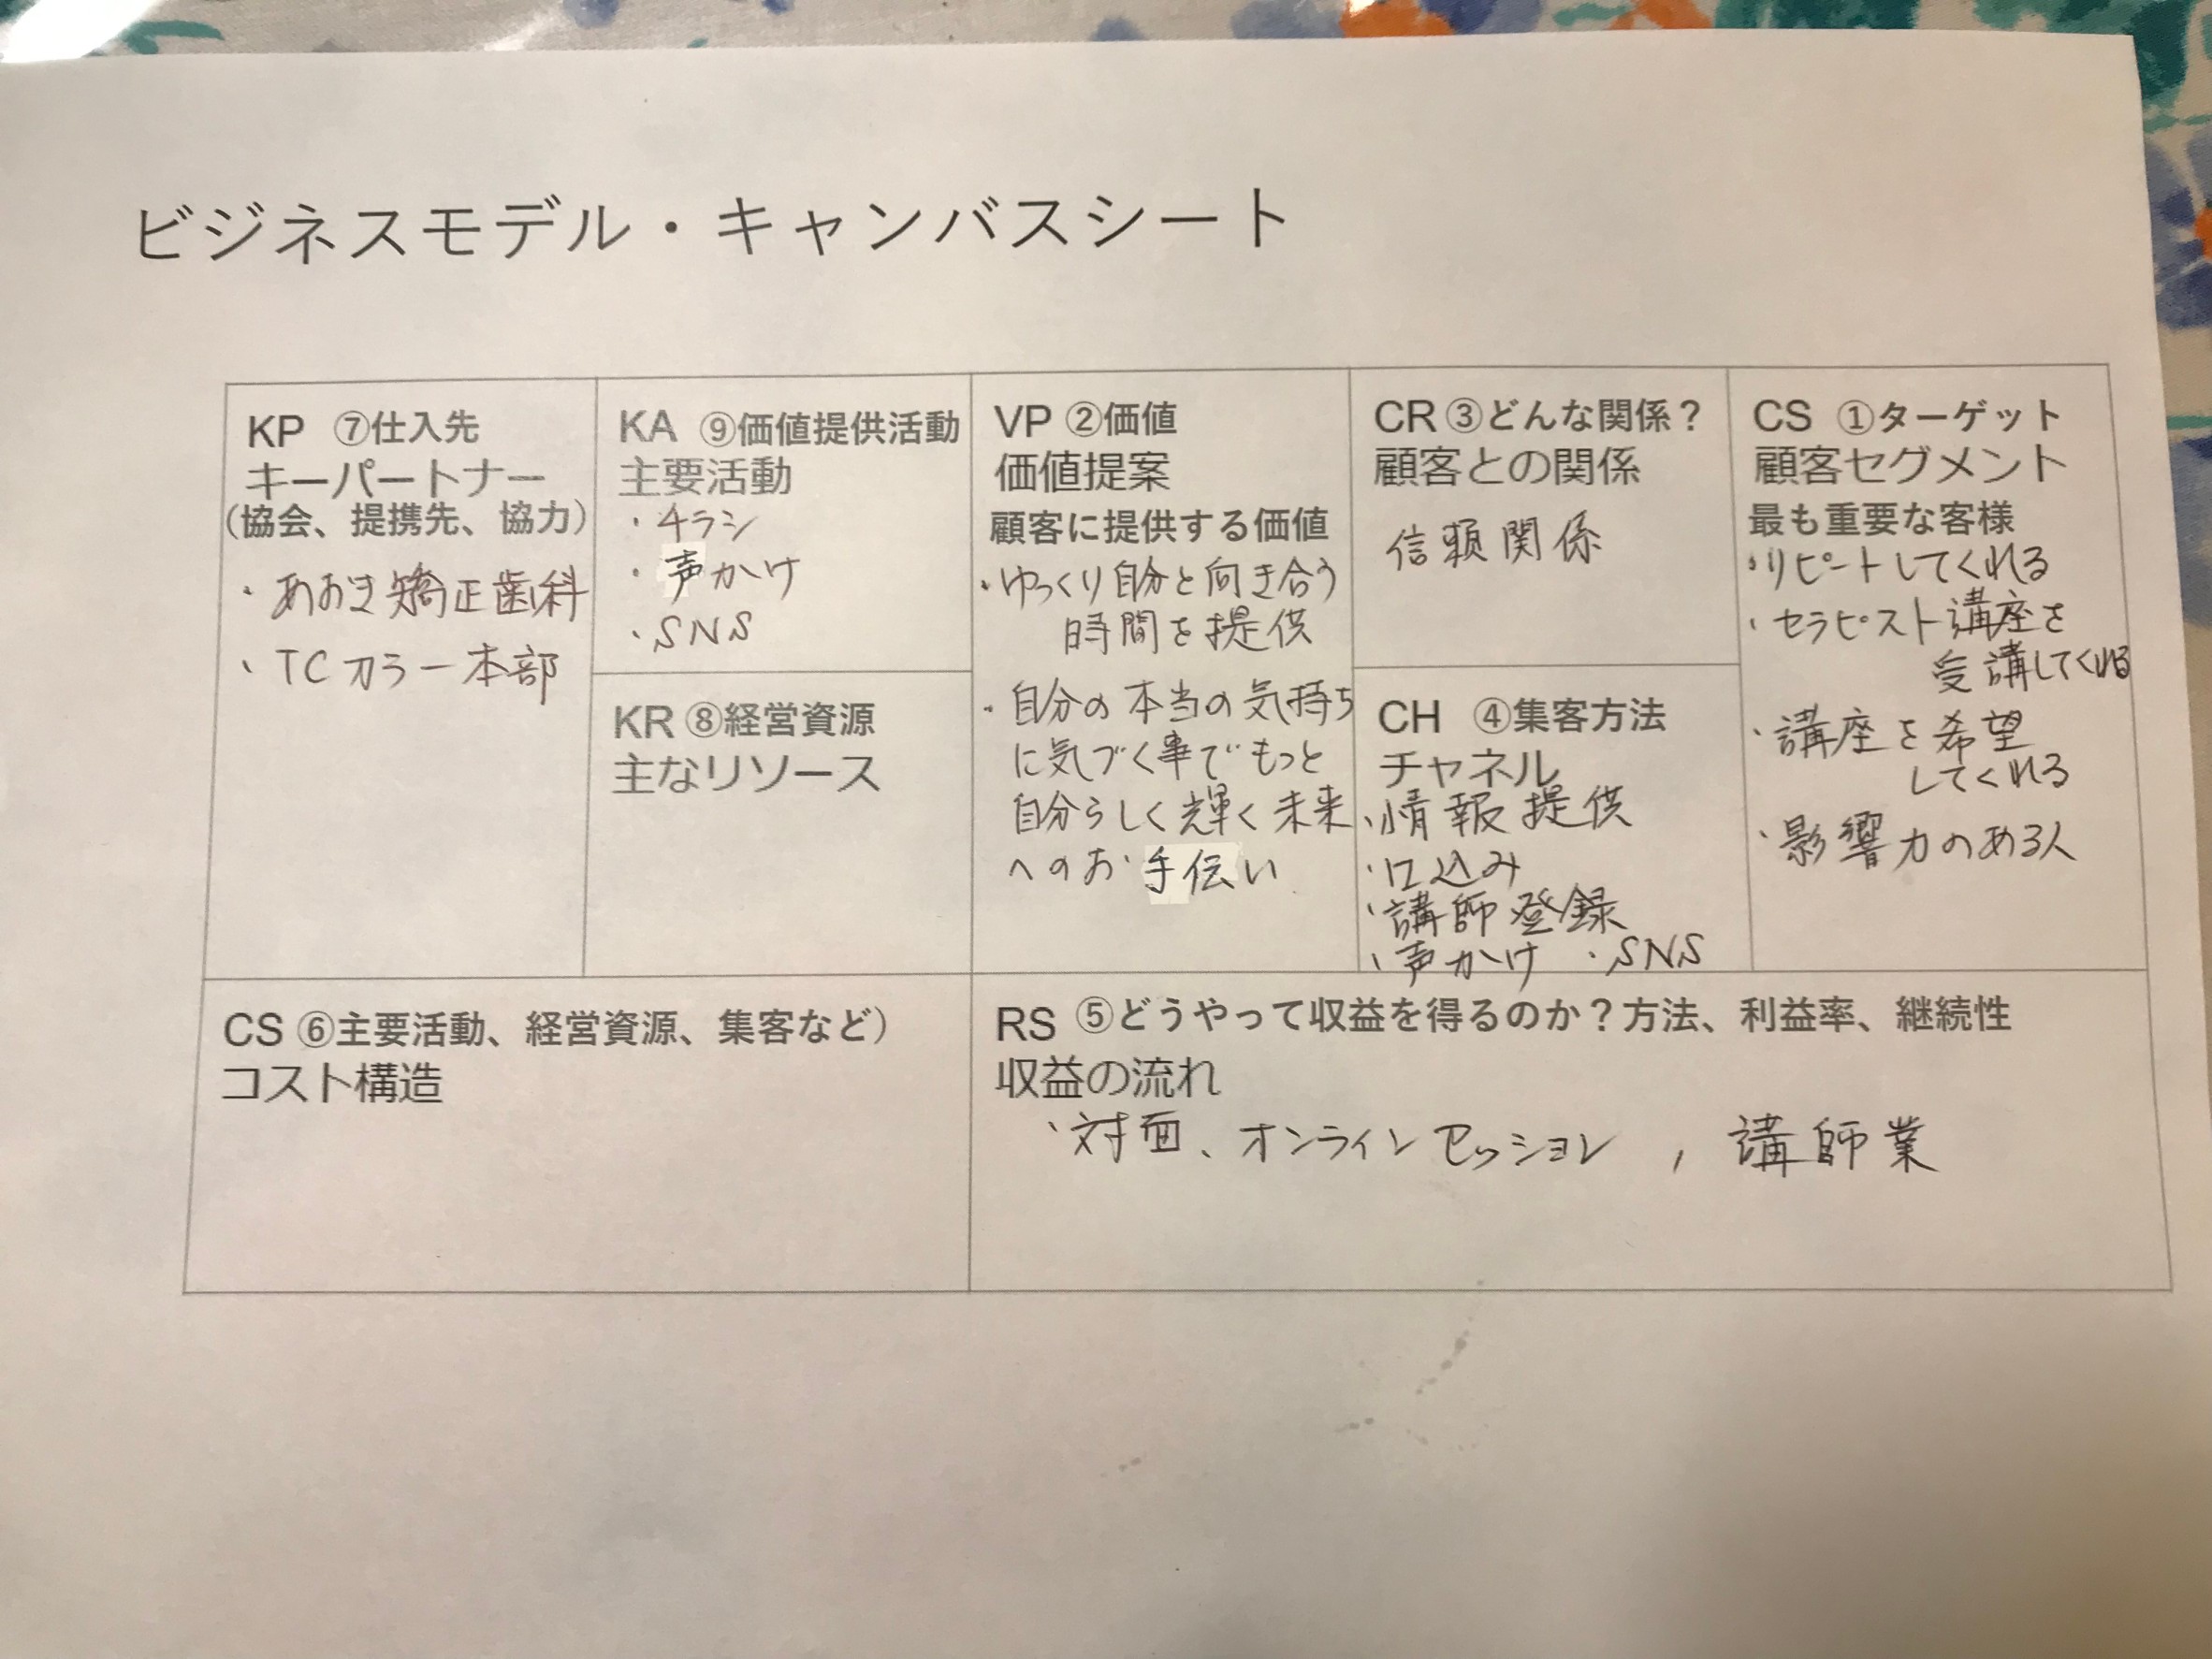 ビジネスモデル・キャンバスシート
KP ⑦仕入先
キーパートナー
(協会、提携先、協力)
・あおき矯正歯科
・TCカラー本部
KA ⑨価値提供活動
主要活動
・チラシ
・声かけ
・SNS
KR ⑧経営資源
主なリソース
VP ②価値
価値提案
顧客に提供する価値
・ゆっくり自分と向き合う
時間を提供
・自分の本当の気持ち
に気づく事でもっと
自分らしく輝く未来
へのお手伝い
CR ③どんな関係？
顧客との関係
信頼関係
CH ④集客方法
チャネル
・情報提供
・口込み
・講師登録
・声かけ ・SNS
CS ①ターゲット
顧客セグメント
最も重要な客様
・リピートしてくれる
・セラピスト講座を
受講してくれる
・講座を希望
してくれる
・影響力のある人
CS ⑥主要活動、経営資源、集客など）
コスト構造
RS ⑤どうやって収益を得るのか？方法、利益率、継続性
収益の流れ
・対面、オンラインセッション，講師業